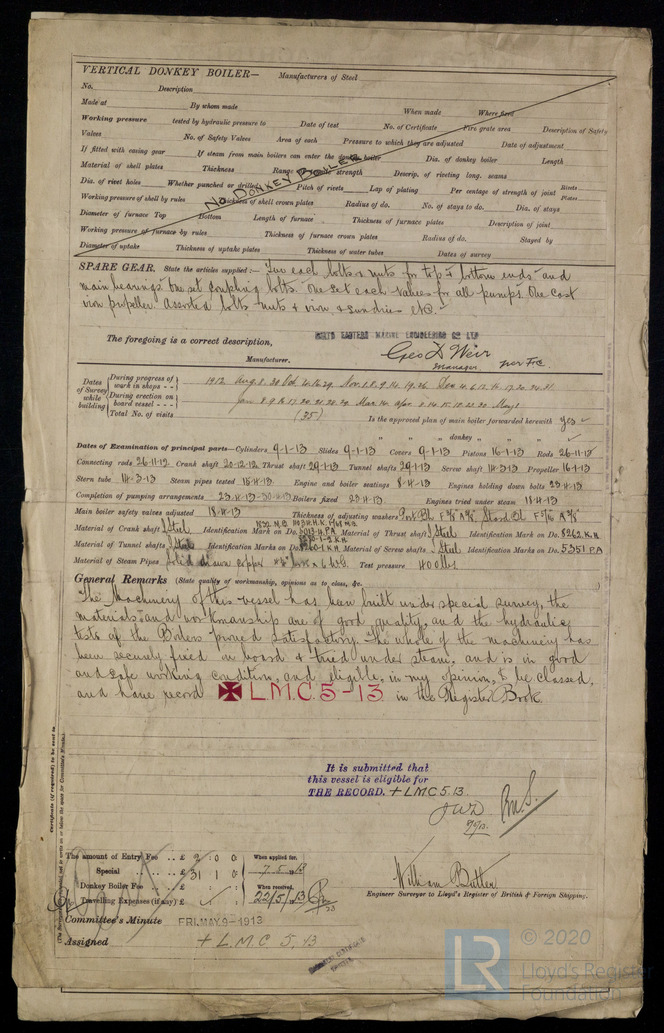 VERTICAL DONKEY BOILER— Manufacturers of Steel
No. Description
Made at By whom made When made Where fixed
Working pressure tested by hydraulic pressure to Date of test No. of Certificate Fire grate area Description of Safety
Valves No. of Safety Valves Area of each Pressure to which they are adjusted Date of adjustment
If fitted with casing gear If steam from main boilers can enter the donkey boiler Dia. of donkey boiler Length
Material of shell plates Thickness Range strength Descrip. of riveting long. seams
Dia. of rivet holes Whether punched or drilled Pitch of rivets Lap of plating Per centage of strength of joint Rivets Plates
No DONKEY BOILER
Working pressure of shell by rules Thickness of shell crown plates Radius of do. No. of stays to do. Dia. of stays
Diameter of furnace Top Bottom Length of furnace Thickness of furnace plates Description of joint
Working pressure of furnace by rules Thickness of furnace crown plates Radius of do. Stayed by
Diameter of uptake Thickness of uptake plates Thickness of water tubes Dates of survey
SPARE GEAR. State the articles supplied:— Two each bolts & nuts for top & bottom ends and
main bearings one set coupling bolts. One set each valves for all pumps. One cast
iron propeller. Assorted bolts nuts & iron & sundries etc.
The foregoing is a correct description,
NORTH EASTERN MARINE ENGINEERING CO LTD
Geo D Weir
Manufacturer. Manager
Dates of Survey while building
During progress of work in shops - - 1912 Aug. 8. 20 Oct 4. 16. 29. Nov. 1. 8. 9. 14. 19. 26. Dec. 4. 6. 12. 13. 17. 20. 24. 31.
During erection on board vessel - - - Jan 8. 9. 16. 17. 20. 21. 28. 29. Mar. 14. Apr. 8. 14. 15. 18. 23. 30 May 1
Total No. of visits (35) Is the approved plan of main boiler forwarded herewith Yes
" " donkey " "
Dates of Examination of principal parts—Cylinders 9-1-13 Slides 9-1-13 Covers 9-1-13 Pistons 16-1-13 Rods 26-11-12
Connecting rods 26-11-12 Crank shaft 20-12-12 Thrust shaft 29-1-13 Tunnel shafts 29-1-13 Screw shaft 14-3-13 Propeller 16-1-13
Stern tube 14-3-13 Steam pipes tested 15-4-13 Engine and boiler seatings 8-4-13 Engines holding down bolts 23-4-13
Completion of pumping arrangements 23-4-13-30-4-13 Boilers fixed 23-4-13 Engines tried under steam 18-4-13
Main boiler safety valves adjusted 18-4-13 Thickness of adjusting washers
Material of Crank shaft Steel Identification Mark on Do. Material of Thrust shaft Steel Identification Mark on Do. 8262. K.H
Material of Tunnel shafts Steel Identification Marks on Do. Material of Screw shafts Steel Identification Marks on Do. 5351 P.A
Material of Steam Pipes Solid drawn copper Test pressure 400 lbs
General Remarks (State quality of workmanship, opinions as to class, &c.
The Machinery of this vessel has been built under special survey, the
materials and workmanship are of good quality, and the hydraulic
tests of the Boilers proved satisfactory. The whole of the machinery has
been securely fixed on board & tried under steam, and is in good
and safe working condition, and eligible, in my opinion, to be classed,
and have record ✠ L.M.C. 5-13 in the Register Book.
It is submitted that
this vessel is eligible for
THE RECORD. + LMC 5.13.
JWD
Certificate (if required) to be sent to
The amount of Entry Fee .. £ 2 : 0 : 0 When applied for.
Special .. .. £ 31 : 1 : 0 7.5.13
Donkey Boiler Fee .. .. £ When received,
Travelling Expenses (if any) £ 22/5/13
William Butter
Engineer Surveyor to Lloyd's Register of British & Foreign Shipping.
Committee's Minute FRI. MAY. 9-1913
Assigned + L.M.C 5.13
LR © 2020
Lloyd's Register
Foundation